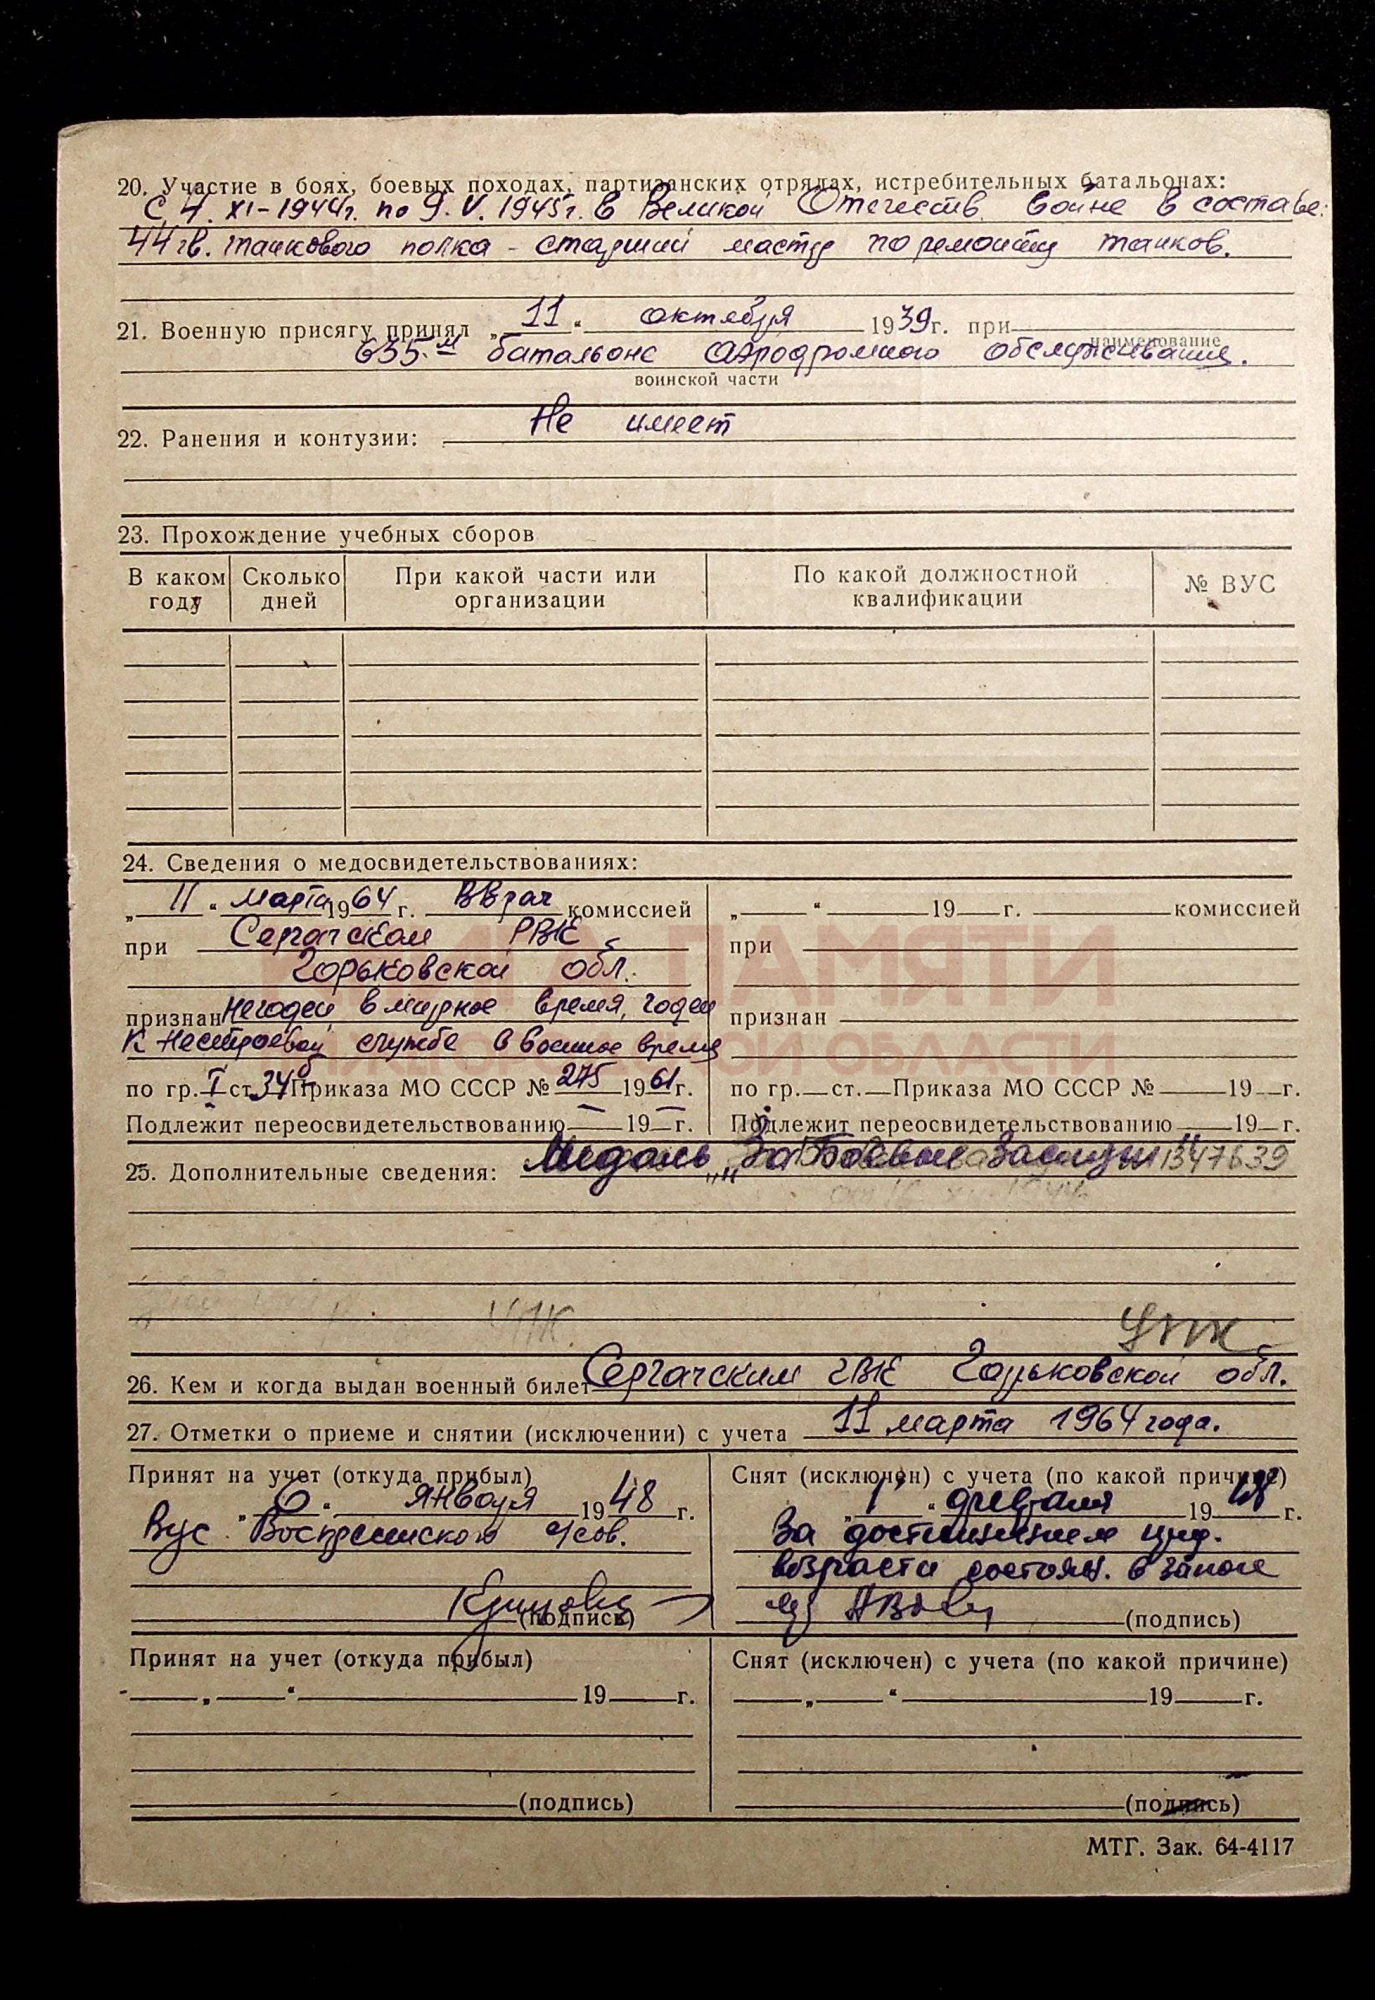 20. Участие в боях, боевых походах, партизанских отрядах, истребительных батальонах:
С 4. XI-1944г. по 9. V. 1945г. в Великой Отечеств. войне в составе:
44 гв. танкового полка - старший мастер по ремонту танков.
21. Военную присягу принял „11“ октября 1939г. при
наименование
635.м батальоне Аэродромного обслуживания.
воинской части
22. Ранения и контузии: Не имеет
23. Прохождение учебных сборов
В каком году Сколько дней При какой части или организации По какой должностной квалификации № ВУС
24. Сведения о медосвидетельствованиях:
„11“ марта 1964 г. ВВрач комиссией
при Сергачском РВК
Горьковской обл.
признан Негоден в мирное время, годен
к нестроевой службе в военное время
по гр. I ст. 34б Приказа МО СССР № 275 1961г.
Подлежит переосвидетельствованию — 19—г.
„ “ 19 г. комиссией
при
признан
по гр. ст. Приказа МО СССР № 19 г.
Подлежит переосвидетельствованию 19 г.
25. Дополнительные сведения: Медаль „За Боевые Заслуги“ 1347639
КНИГА ПАМЯТИ
НИЖЕГОРОДСКОЙ ОБЛАСТИ
УПК
УПК
26. Кем и когда выдан военный билет Сергачским РВК Горьковской обл.
11 марта 1964 года.
27. Отметки о приеме и снятии (исключении) с учета
Принят на учет (откуда прибыл)
„6“ января 1948 г.
Вус Воскресенского
(подпись)
Снят (исключен) с учета (по какой причине)
„1“ февраля 19 г.
За достижением пред.
возраста состоян. в запасе
(подпись)
Принят на учет (откуда прибыл)
„ “ 19 г.
(подпись)
Снят (исключен) с учета (по какой причине)
„ “ 19 г.
(подпись)
МТГ. Зак. 64-4117